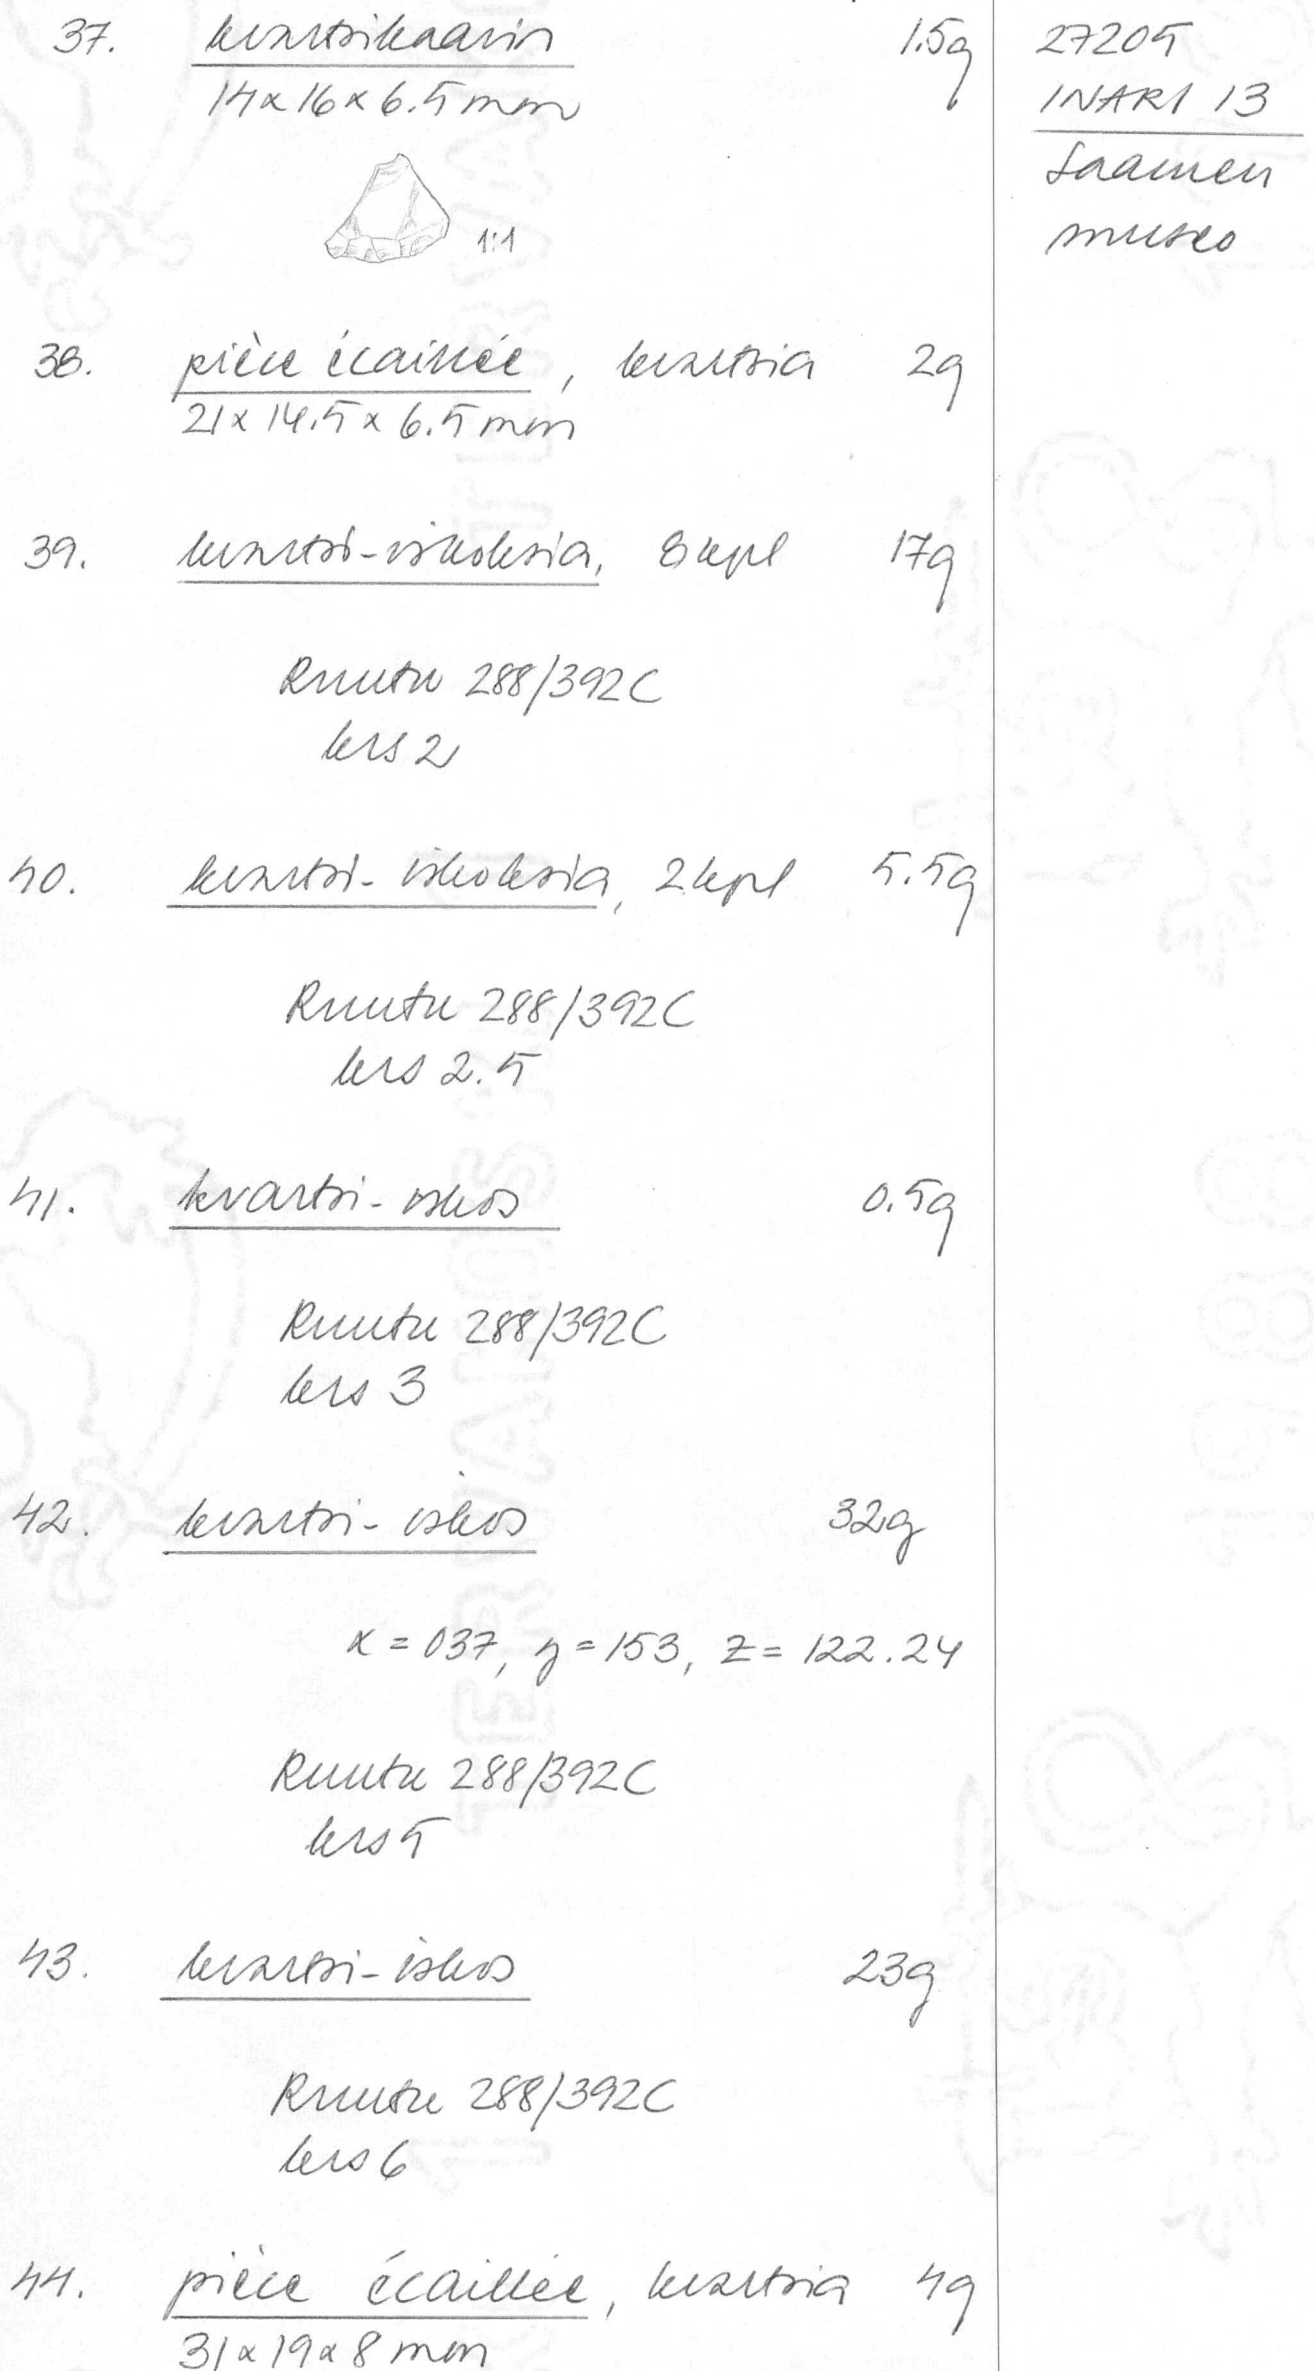 37. kvartsikaavin 1.5g
14 x 16 x 6.5 mm
1:1
27205
INARI 13
Saamen
museo
38. pièce écaillée, kvartsia 2g
21 x 14.5 x 6.5 mm
39. kvartsi-iskoksia, 8 kpl 17g
Ruutu 288/392C
krs 2
40. kvartsi-iskoksia, 2 kpl 5.5g
Ruutu 288/392C
krs 2.5
41. kvartsi-iskos 0.5g
Ruutu 288/392C
krs 3
42. kvartsi-iskos 32g
x = 037, y = 153, z = 122.24
Ruutu 288/392C
krs 5
43. kvartsi-iskos 23g
Ruutu 288/392C
krs 6
44. pièce écaillée, kvartsia 4g
31 x 19 x 8 mm